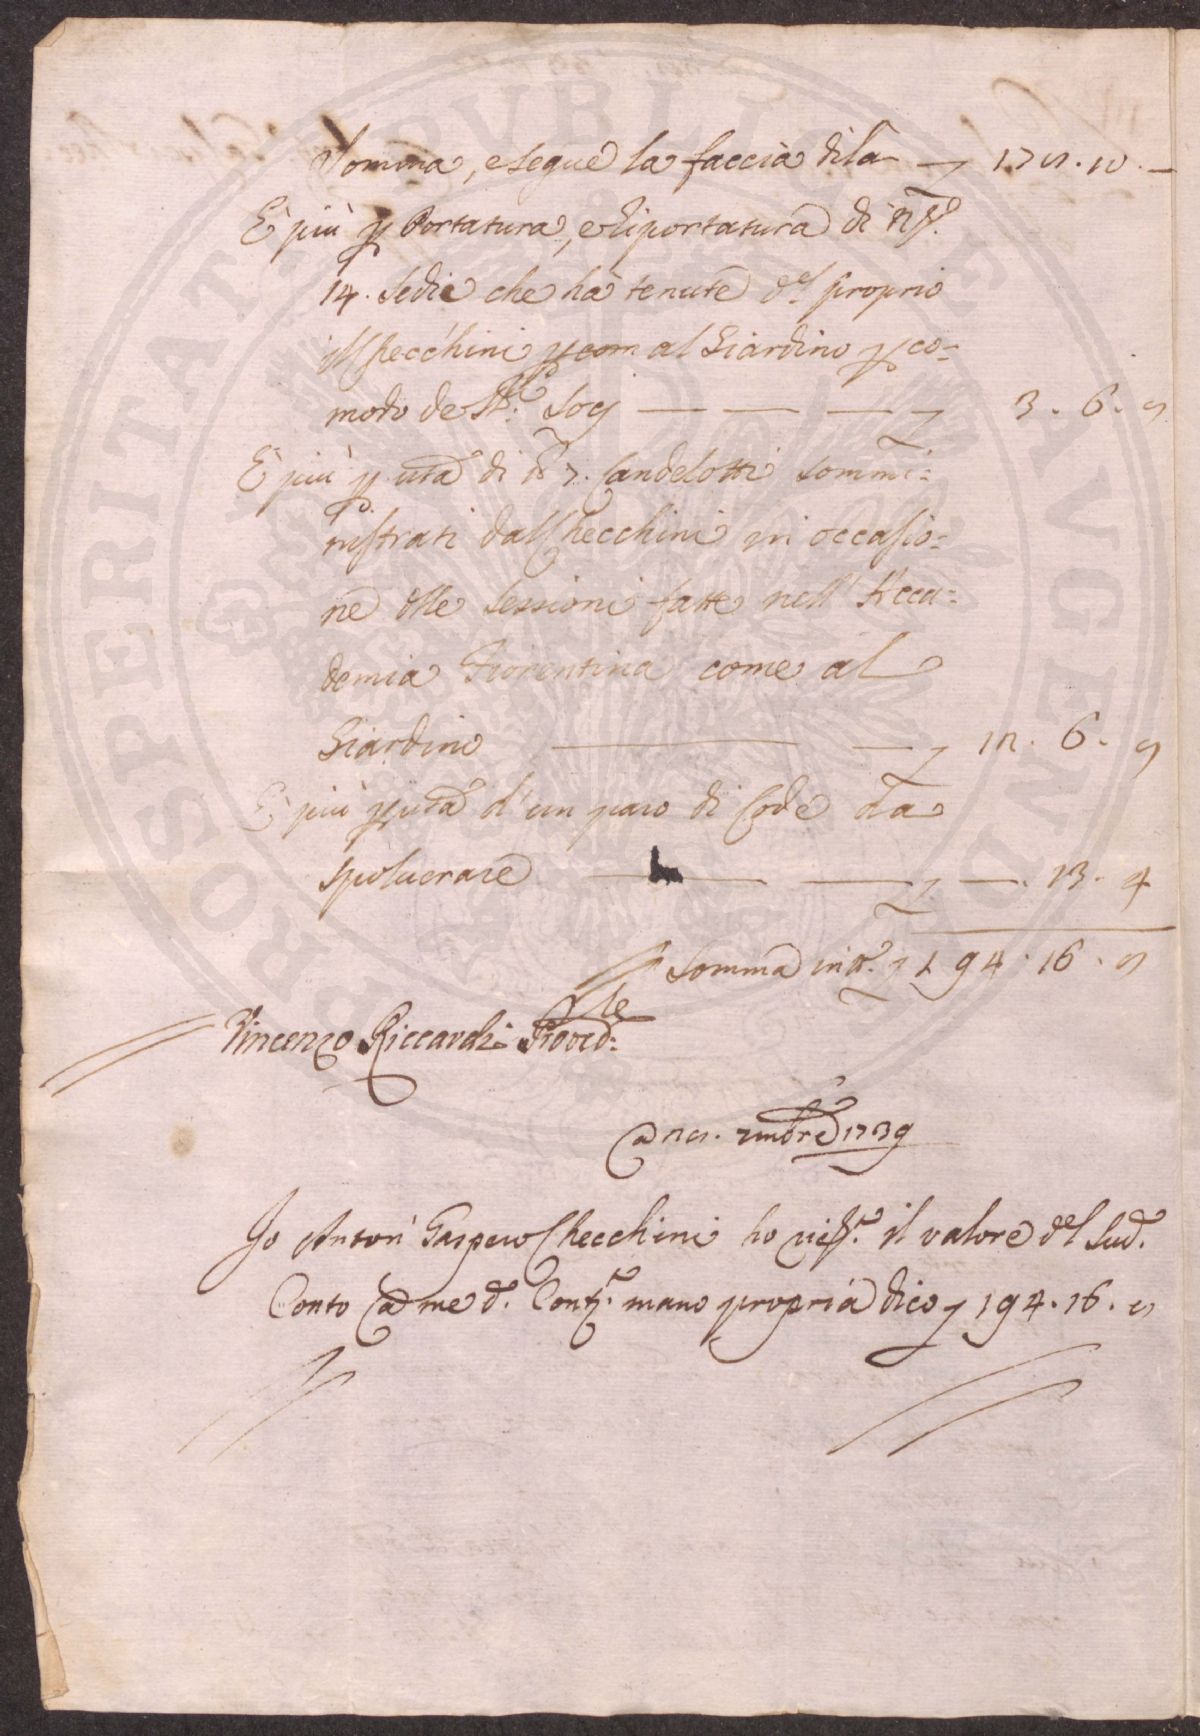 Somma, e segue la faccia di là — 175.10.—
E più p Portatura, e riportatura di n.°
14. Sedie che ha tenute del proprio
il Checchini p com al Giardino p co=
modo de SS.ri Soci — — — 3.6.8
E più p uta di n° 7. Candelotti sommi=
nistrati dal Checchini in occasio=
ne delle sessioni fatte nell' Acca=
demia Fiorentina come al
Giardino — — 6.8
E più p uta d'un paro di Code da
spolverare — — —.13.4
Somma in tt.° 194.16.8
Vincenzo Riccardi Proved:re
9mbre 1739
Io Anton Gaspero Checchini ho rice.to il valore del Sud.o
Conto Co me d.o Cont.i mano propria dico 194.16.8
PROSPERITATI PVBLICAE AVGENDAE